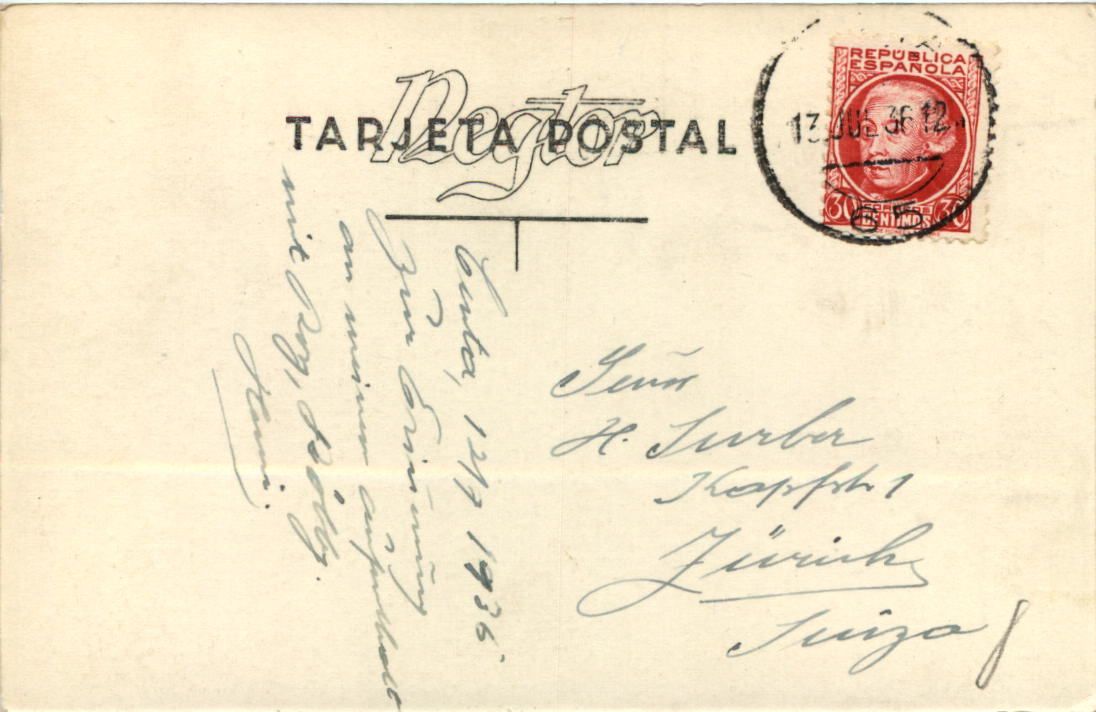 TARJETA POSTAL
REPÚBLICA
ESPAÑOLA
30 CENTIMOS 30
13 JUL 36 12
65
Ceuta, 12/7 1936
Zur Erinnerung
an meinen Aufenthalt
mit
Hani.
Herrn
H. Surber
Kapfstr 1
Zürich
Suiza